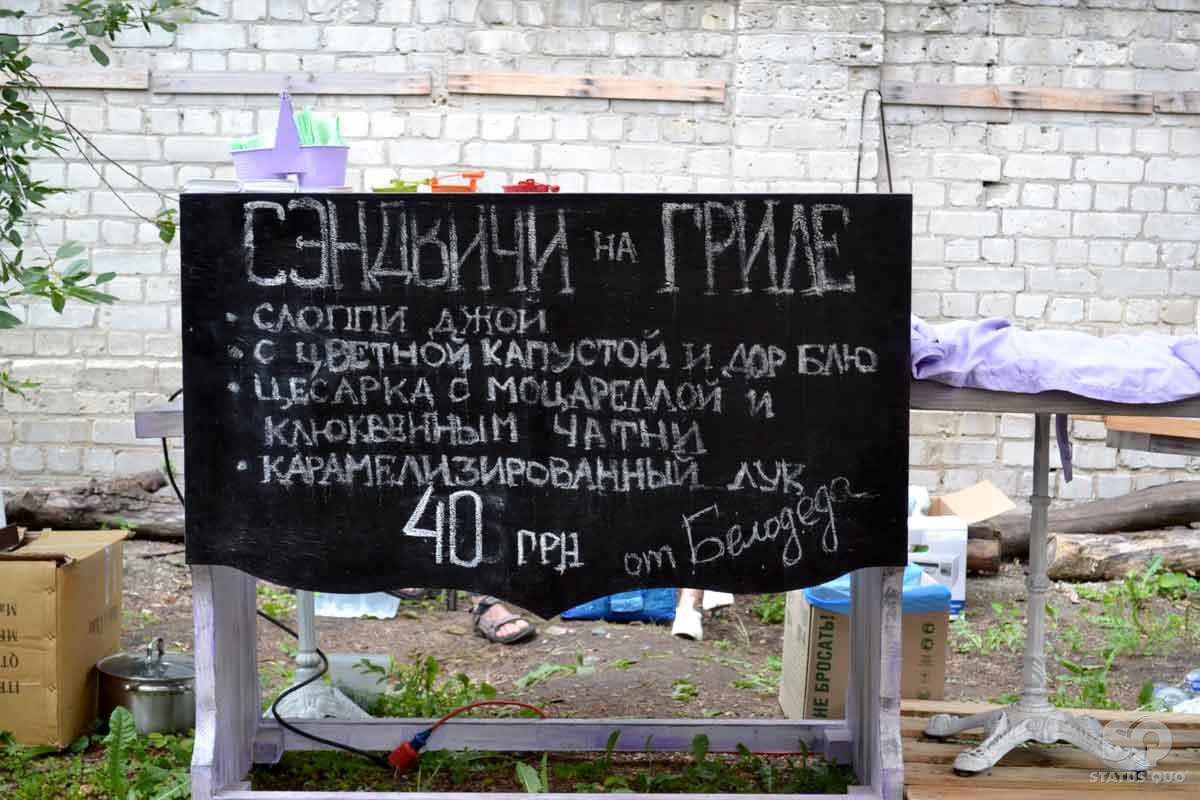 СЭНДВИЧИ НА ГРИЛЕ
• СЛОППИ ДЖОИ
• С ЦВЕТНОЙ КАПУСТОЙ И ДОР БЛЮ
• ЦЕСАРКА С МОЦАРЕЛЛОЙ И
КЛЮКВЕННЫМ ЧАТНИ
• КАРАМЕЛИЗИРОВАННЫЙ ЛУК
40 ГРН от Белодеда
НЕ БРОСАТЬ!
STATUS QUO